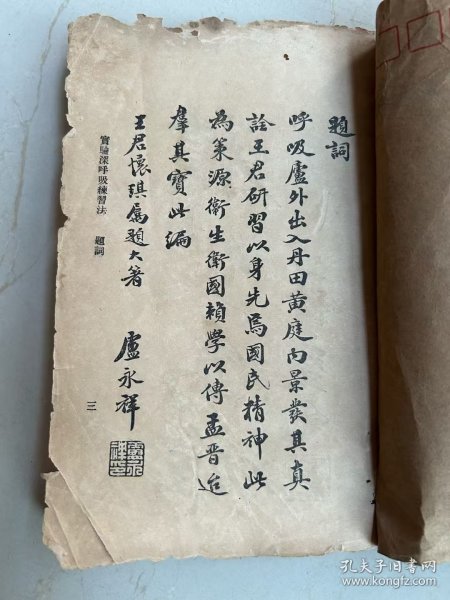 題詞
呼吸廬外出入丹田黃庭內景發其真
詮王君研習以身先焉國民精神此
為策源衛生衛國賴學以傳孟晉迨
羣其寶此編
王君懷琪屬題大著
盧永祥
盧永祥印
實驗深呼吸練習法 題詞
三
孔夫子旧书网
www.kongfz.com